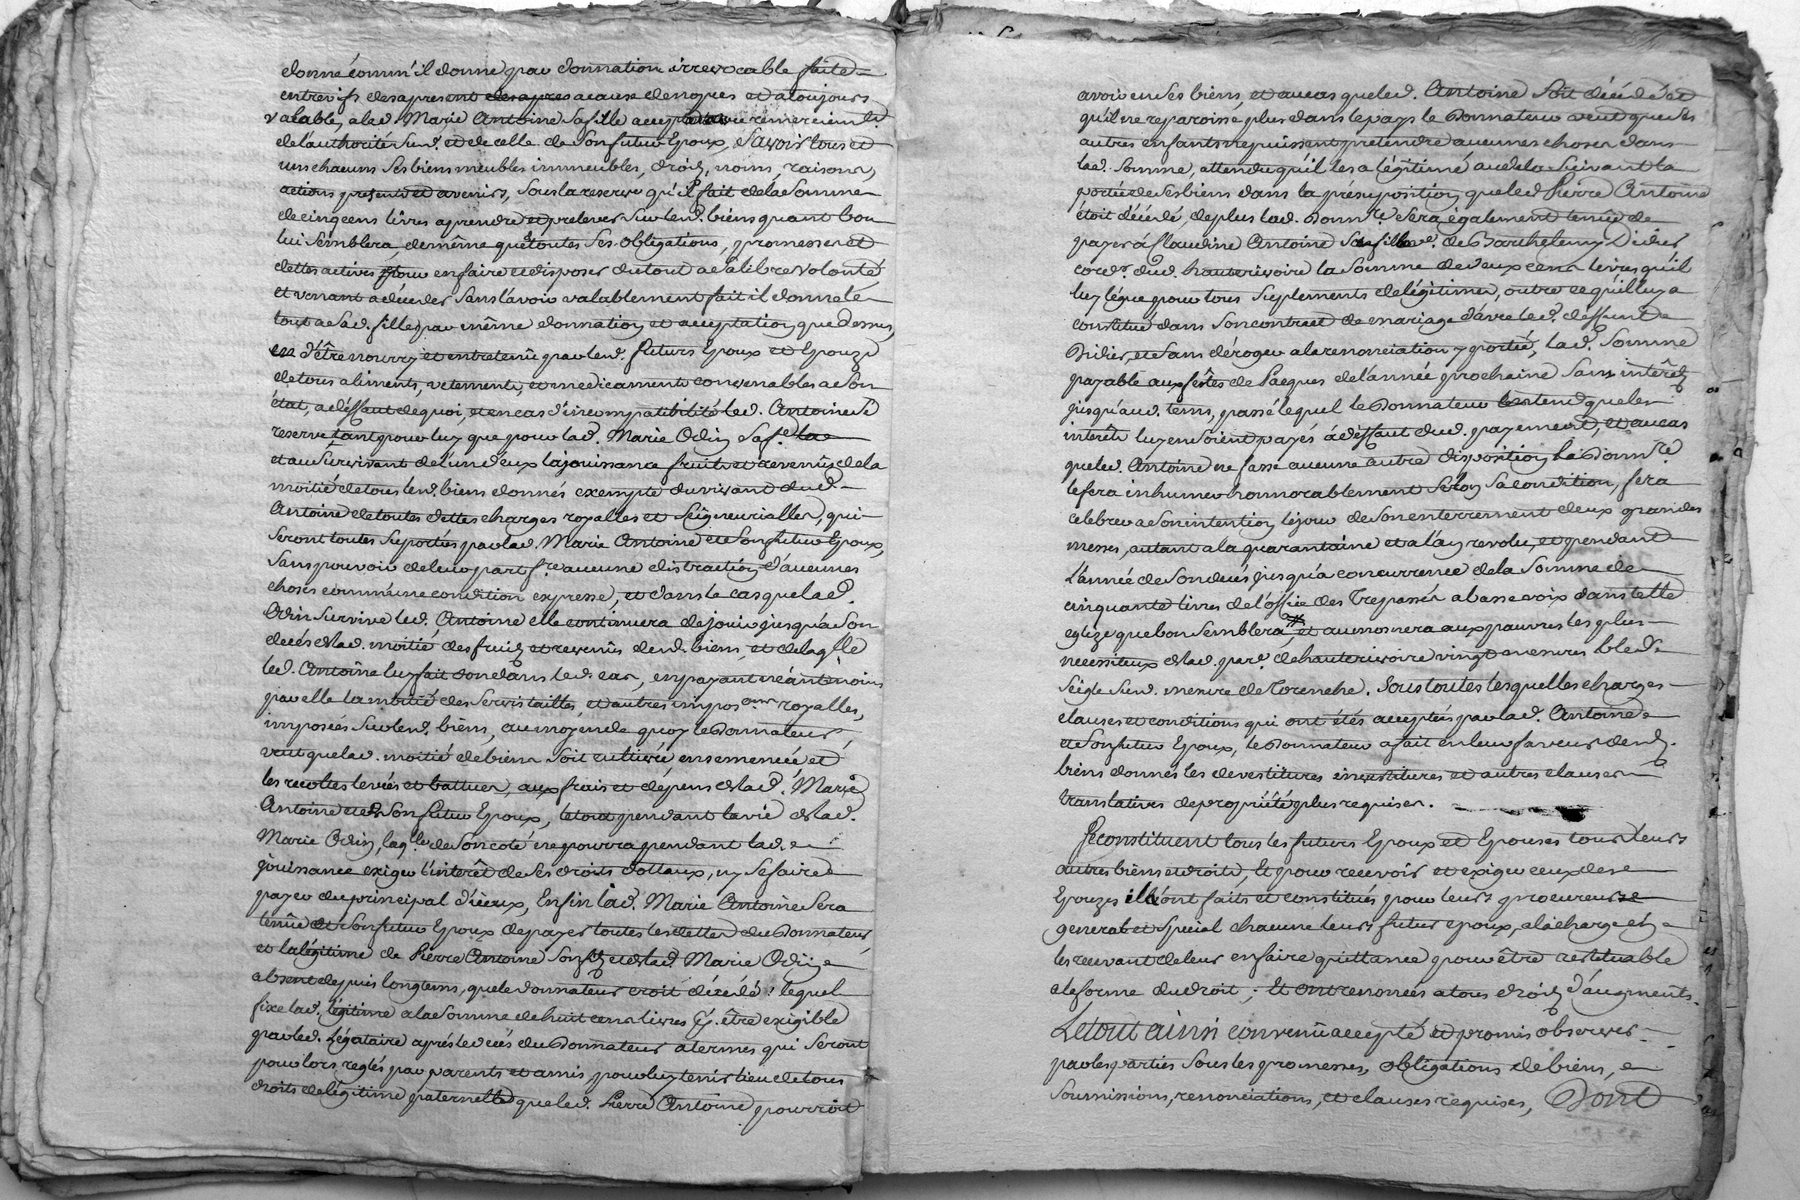 donné comm'il donne par donnation irrevocable faite
entre vifs des apresent des apres a cause de nopces et a toujours
valable, a lad. Marie Antoine sa fille accept remerciem.t
de l'authorité sud. et de celle de son futur Epoux, Savoir tous et
un chacuns ses biens meubles immeubles, droits, noms, raisons,
actions presents et avenirs, sous la reserve qu'il fait de la somme
de cinq cens livres a prendre et prelever sur lesd. biens quant bon
lui semblera, de même que toutes ses obligations, promesses et
dettes actives pour en faire et disposer du tout a sa libre volonté,
et venant a décéder sans l'avoir valablement fait il donne le
tout a sad. fille par même donnation et acceptation que dessus,
d'être nourry et entretenû par lesd. futurs Epoux et Epouze
de tous aliments, vetements, et medicaments convenables a son
état, a déffaut de quoi, et en cas d'incompatibilité led. Antoine se
reserve tant pour luy que pour lad. Marie Odin sa fe. la
et au survivant de l'un d'eux la jouissance fruits et revenûs de la
moitié de tous lesd. biens donnés exempte du vivant dud.
Antoine de toutes dettes charges royalles et seigneurialles, qui
seront toutes suportés par lad. Marie Antoine et son futur Epoux,
sans pouvoir de leur part f.re aucune distraction d'aucunes
choses comm'une condition expresse, et dans le cas que lad.
Odin survive led. Antoine elle continuera de jouir jusqu'à son
decés de lad. moitié des fruits et revenûs desd. biens, et de laq.lle
led. Antoine luy fait don dans led. cas, en payant néantmoins
par elle la moitié des servis tailles, et autres impos.ons royalles,
imposées sur lesd. biens, au moyen de quoy le Donnateur
veut que lad. moitié de biens soit cultivée ensemencée et
les recoltes levées et battues, aux frais et dépens de lad. Marie
Antoine et de son futur Epoux, le tout pendant la vie de lad.
Marie Odin, laq.lle de son coté ne pourra pendant lad.
jouissance exiger l'interêt de ses droits dottaux, ny se faire
payer du principal d'iceux, Enfin lad. Marie Antoine sera
tenûe et son futur Epoux de payer toutes les dettes du Donnateur,
et la légitime de Pierre Antoine son fils et de lad. Marie Odin
absent depuis longtems, que le donnateur croit décédé, lequel
fixe lad. légitime a la somme de huit cens livres p.r être exigible
par led. légataire aprés le décés du Donnateur a termes qui seront
pour lors reglés par parents et amis, pour luy tenir lieu de tous
droits de légitime paternelle que led. Pierre Antoine pourroit
avoir en ses biens, et au cas que led. Antoine soit décédé et
qu'il ne reparoisse plus dans le pays le Donnateur veut que ses
autres enfants ne puissent pretendre aucunes choses dans
lad. somme, attendu qu'il les a légitimé au dela suivant la
portée de ses biens dans la présuposition que led Pierre Antoine
étoit décédé, de plus lad. Donn.re sera également tenûe de
payer à Claudine Antoine sa fille v.e de Barthelemy Didier
cord.r dud. hauterivoire la somme de deux cens livres qu'il
luy légue pour tous suplements de légitime, outre ce qu'il luy a
constitué dans son contract de mariage d'avec led. deffunt
Didier, et sans déroger a la renonciation y portée, lad. somme
payable aux fêtes de Paques de l'année prochaine sans interêts
jusqu'aud. tems, passé lequel le Donnateur entend que les
interêts luy en soient payés à déffaut dud. payement, et au cas
que led. Antoine ne fasse aucune autre disposition, la Donn.re
le fera inhumer honnorablement selon sa condition, fera
celebrer a son intention le jour de son enterrement deux grandes
messes, autant a la quarantaine et a l'an revolu, et pendant
l'année de son decés jusqu'a concurrence de la somme de
cinquante livres de l'office des Trepassés a basse voix dans telle
eglize que bon semblera, et aumosnera aux pauvres les plus
necessiteux de lad. par.se de hauterivoire vingt mesures bled
seigle sud. mesure de Torenche. Sous toutes lesquelles charges
clauses et conditions qui ont étés acceptées par lad. Antoine
et son futur Epoux, le Donnateur a fait en leur faveur desd.
biens donnés les devestitures investitures et autres clauses
translatives de propriété plus requises.
Se constituent tous les futurs Epoux et Epouses tous leurs
autres biens et droits, et pour recevoir et exiger ceux des
Epouzes elles ont faits et constitués pour leurs procureurs
general et special chacune leurs futurs epoux, a la charge en
les recevant de leur en faire quittance pour être restituable
a la forme du droit; Et ont renoncés a tous droits d'augments.
Le tout ainsi convenû accepté et promis observer
par les parties sous les promesses, obligations de biens,
soumissions, renonciations, et clauses requises, Dont